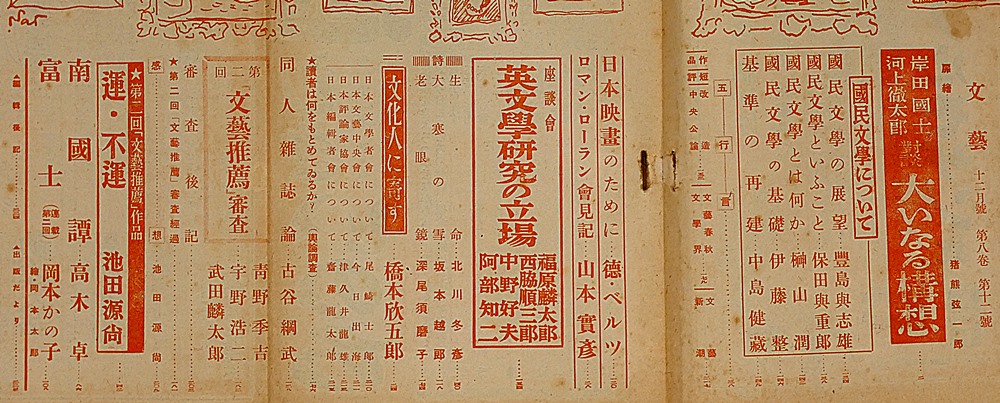 文藝 十二月號 第八卷 第十二號
扉繪 猪熊弦一郎
岸田國士
河上徹太郎
對談
大いなる構想
國民文學について
國民文學の展望 豐島與志雄
國民文學といふこと 保田與重郎
國民文學とは何か 榊山潤
國民文學の基礎 伊藤整
基準の再建 中島健藏
五行言
作品
短評
改造
中央公論
文藝春秋
文學界
文藝
新潮
日本映畫のために 德・ベルツ
ロマン・ローラン會見記 山本實彥
座談會
英文學研究の立場
福原麟太郎
西脇順三郎
中野好夫
阿部知二
詩
生命 北川冬彥
大寒の雪 坂本越郎
老眼鏡 深尾須磨子
文化人に寄す
橋本欣五郎
日本文學者會について 尾崎士郎
日本文藝中央會について 今日出海
日本評論家協會について 津久井龍雄
日本編輯者會について 齋藤龍太郎
★讀者は何をもとめてゐるか?(輿論調査)
同人雜誌論 古谷綱武
第二回「文藝推薦」審査
靑野季吉
宇野浩二
武田麟太郎
審査後記
★第二回「文藝推薦」審査經過
感想 池田源尙
★第二回「文藝推薦」作品
運・不運 池田源尙
南國譚 高木卓
富士 (連載第二回) 岡本かの子
繪 岡本太郎
▲編輯後記
▲出版だより